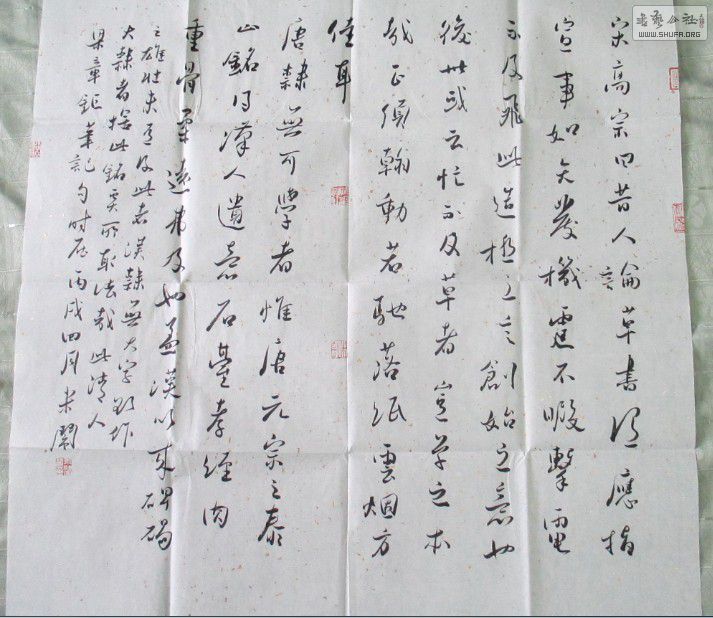 宋高宗曰昔人論草書謂應指
宣事如矢發機霆不暇擊電
不及飛此造極之言創始之意也
後世或云忙不及草者豈草之本
哉正須翰動若馳落紙雲烟方
佳耳
唐隸無可學者惟唐元宗之泰
山銘得漢人遺意石臺孝經肉
重骨柔遠弗及也蓋漢以來碑碣
之雄壯未有及此者漢隸無大字欲作
大隸者捨此銘奚所取法哉此清人
梁章鉅筆記句時在丙戌四月朱鬧
書藝公社
WWW.SHUFA.ORG